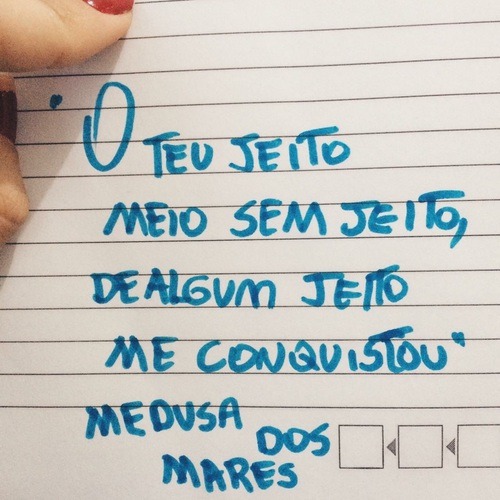 "O TEU JEITO
MEIO SEM JEITO,
DE ALGUM JEITO
ME CONQUISTOU"
MEDUSA
DOS
MARES